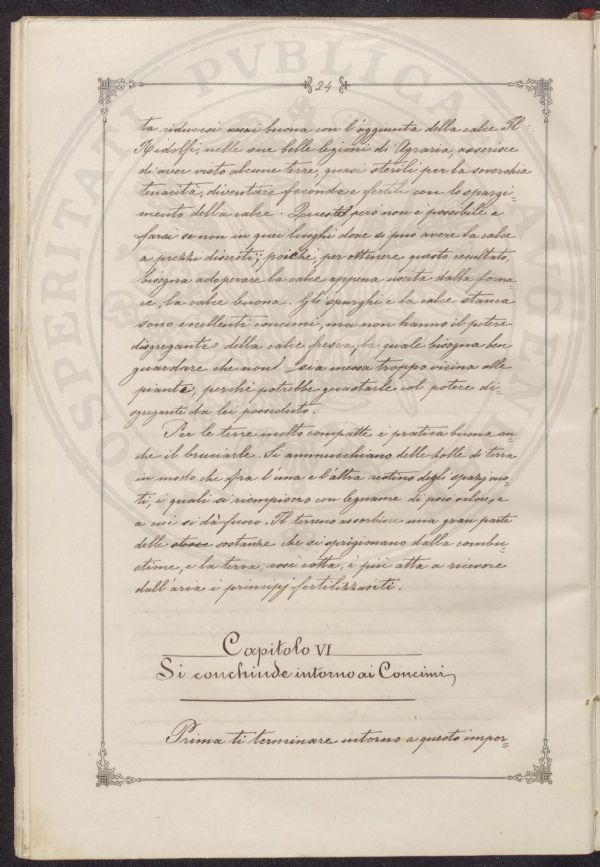 24
ta riducesi assai buona con l'aggiunta della calce. Il
Ridolfi, nelle sue belle lezioni di Agraria, asserisce
di aver visto alcune terre, quasi sterili per la soverchia
tenacità, diventare feconde e fertili con lo spargi=
mento della calce. Questo però non è possibile a
farsi se non in quei luoghi dove si può avere la calce
a prezzi discreti; poichè, per ottenere questo resultato,
bisogna adoperare la calce appena uscita dalla forna=
ce, la calce buona. Gli spurghi e la calce stanca
sono eccellenti concimi, ma non hanno il potere
disgregante della calce fresca, la quale bisogna ben
guardare che non sia messa troppo vicina alle
piante, perchè potrebbe guastarle col potere di=
sgregante da lei posseduto.
Per le terre molto compatte è pratica buona an=
che il bruciarle. Si ammucchiano delle zolle di terra
in modo che fra l'una e l'altra restino degli spazj vuo=
ti, i quali si riempiono con legname di poco valore, e
a cui si dà fuoco. Il terreno assorbisce una gran parte
delle sostanze che si sprigionano dalla combu=
stione, e la terra, così cotta, è più atta a ricevere
dall'aria i principj fertilizzanti.
Capitolo VI
Si conchiude intorno ai Concimi
Prima ti terminare intorno a questo impor=
PROSPERITATI PVBLICAE AVGENDAE